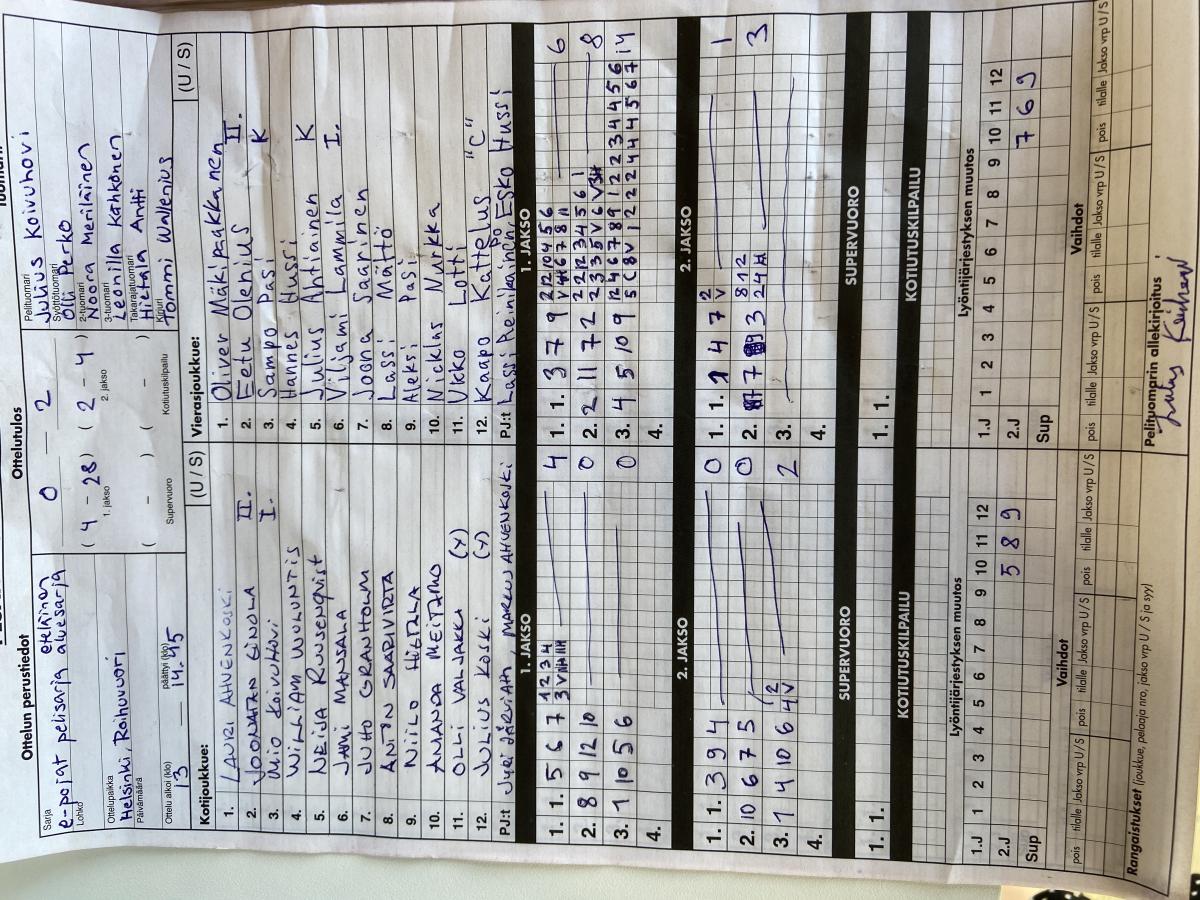 Ottelun perustiedot
Ottelutulos
Sarja
e-pojat pelisarja eteläinen aluesarja
Lohko
Ottelupaikka
Helsinki, Roihuvuori
Päivämäärä
Ottelu alkoi (klo) 13 — päättyi (klo) 14.45
0 — 2
( 4 – 28 ) ( 2 – 4 )
1. jakso 2. jakso
( – ) ( – )
Supervuoro Kotiutuskilpailu
Pelituomari
Julius Koivuhovi
Syöttötuomari
Olli Perko
2-tuomari
Noora Meriläinen
3-tuomari
Leonilla Kähkönen
Takarajatuomari
Hietala Antti
Kirjuri
Tommi Wallenius
Kotijoukkue: (U / S)
1. LAURI AHVENKOSKI
2. JOONATAN GINOLA II.
3. MIO KOIVUHOVI I.
4. WILLIAM WULUNTIS
5. NEIIA RUUSENQVIST
6. JAMI MANSALA
7. JUHO GRANHOLM
8. ANTON SAARIVIRTA
9. NIILO HIETALA
10. AMANDA MEITAMO
11. OLLI VALJAKKA (x)
12. JULIUS KOSKI (x)
PJ:t Jyri JÄRVIAH, MARKUS AHVENKOSKI
Vierasjoukkue: (U / S)
1. Oliver Mäkipaakkanen II.
2. Eetu Olenius K
3. Sampo Pasi
4. Hannes Hussi
5. Julius Ahtiainen K
6. Viljami Lammila I.
7. Joona Saarinen
8. Lassi Mättö
9. Aleksi Pasi
10. Nicklas Nurkka
11. Ukko Lotti
12. Kaapo Kattelus "C"
PJ:t Lassi Reinikainen, Esko Hussi
1. JAKSO
1. 1. 5 6 7 1 2 3 4 4
2. 8 9 12 10 0
3. 1 10 5 6 0
4.
1. JAKSO
1. 1. 3 7 9 2 12 10 4 5 6 6
2. 2 11 7 2 2 2 12 3 4 5 6 1 8
3. 4 5 10 9 12 4 6 7 8 9 1 2 2 3 4 4 5 6 14
4.
2. JAKSO
1. 1. 3 9 4 0
2. 10 6 7 5 0
3. 1 4 10 6 2
4.
2. JAKSO
1. 1. 1 4 7 1
2. 7 3 8 12 3
3.
4.
SUPERVUORO
1. 1.
SUPERVUORO
1. 1.
KOTIUTUSKILPAILU
KOTIUTUSKILPAILU
Lyöntijärjestyksen muutos
1.J 1 2 3 4 5 6 7 8 9 10 11 12
2.J 5 8 9
Sup
Lyöntijärjestyksen muutos
1.J 1 2 3 4 5 6 7 8 9 10 11 12
2.J 7 6 9
Sup
Vaihdot
pois tilalle Jakso vrp U / S pois tilalle Jakso vrp U / S pois tilalle Jakso vrp U / S
Vaihdot
pois tilalle Jakso vrp U / S pois tilalle Jakso vrp U / S pois tilalle Jakso vrp U / S
Rangaistukset (joukkue, pelaaja nro, jakso vrp U / S ja syy)
Pelituomarin allekirjoitus